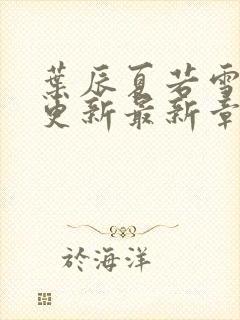 葉辰夏若雪
更新最新章
於海洋